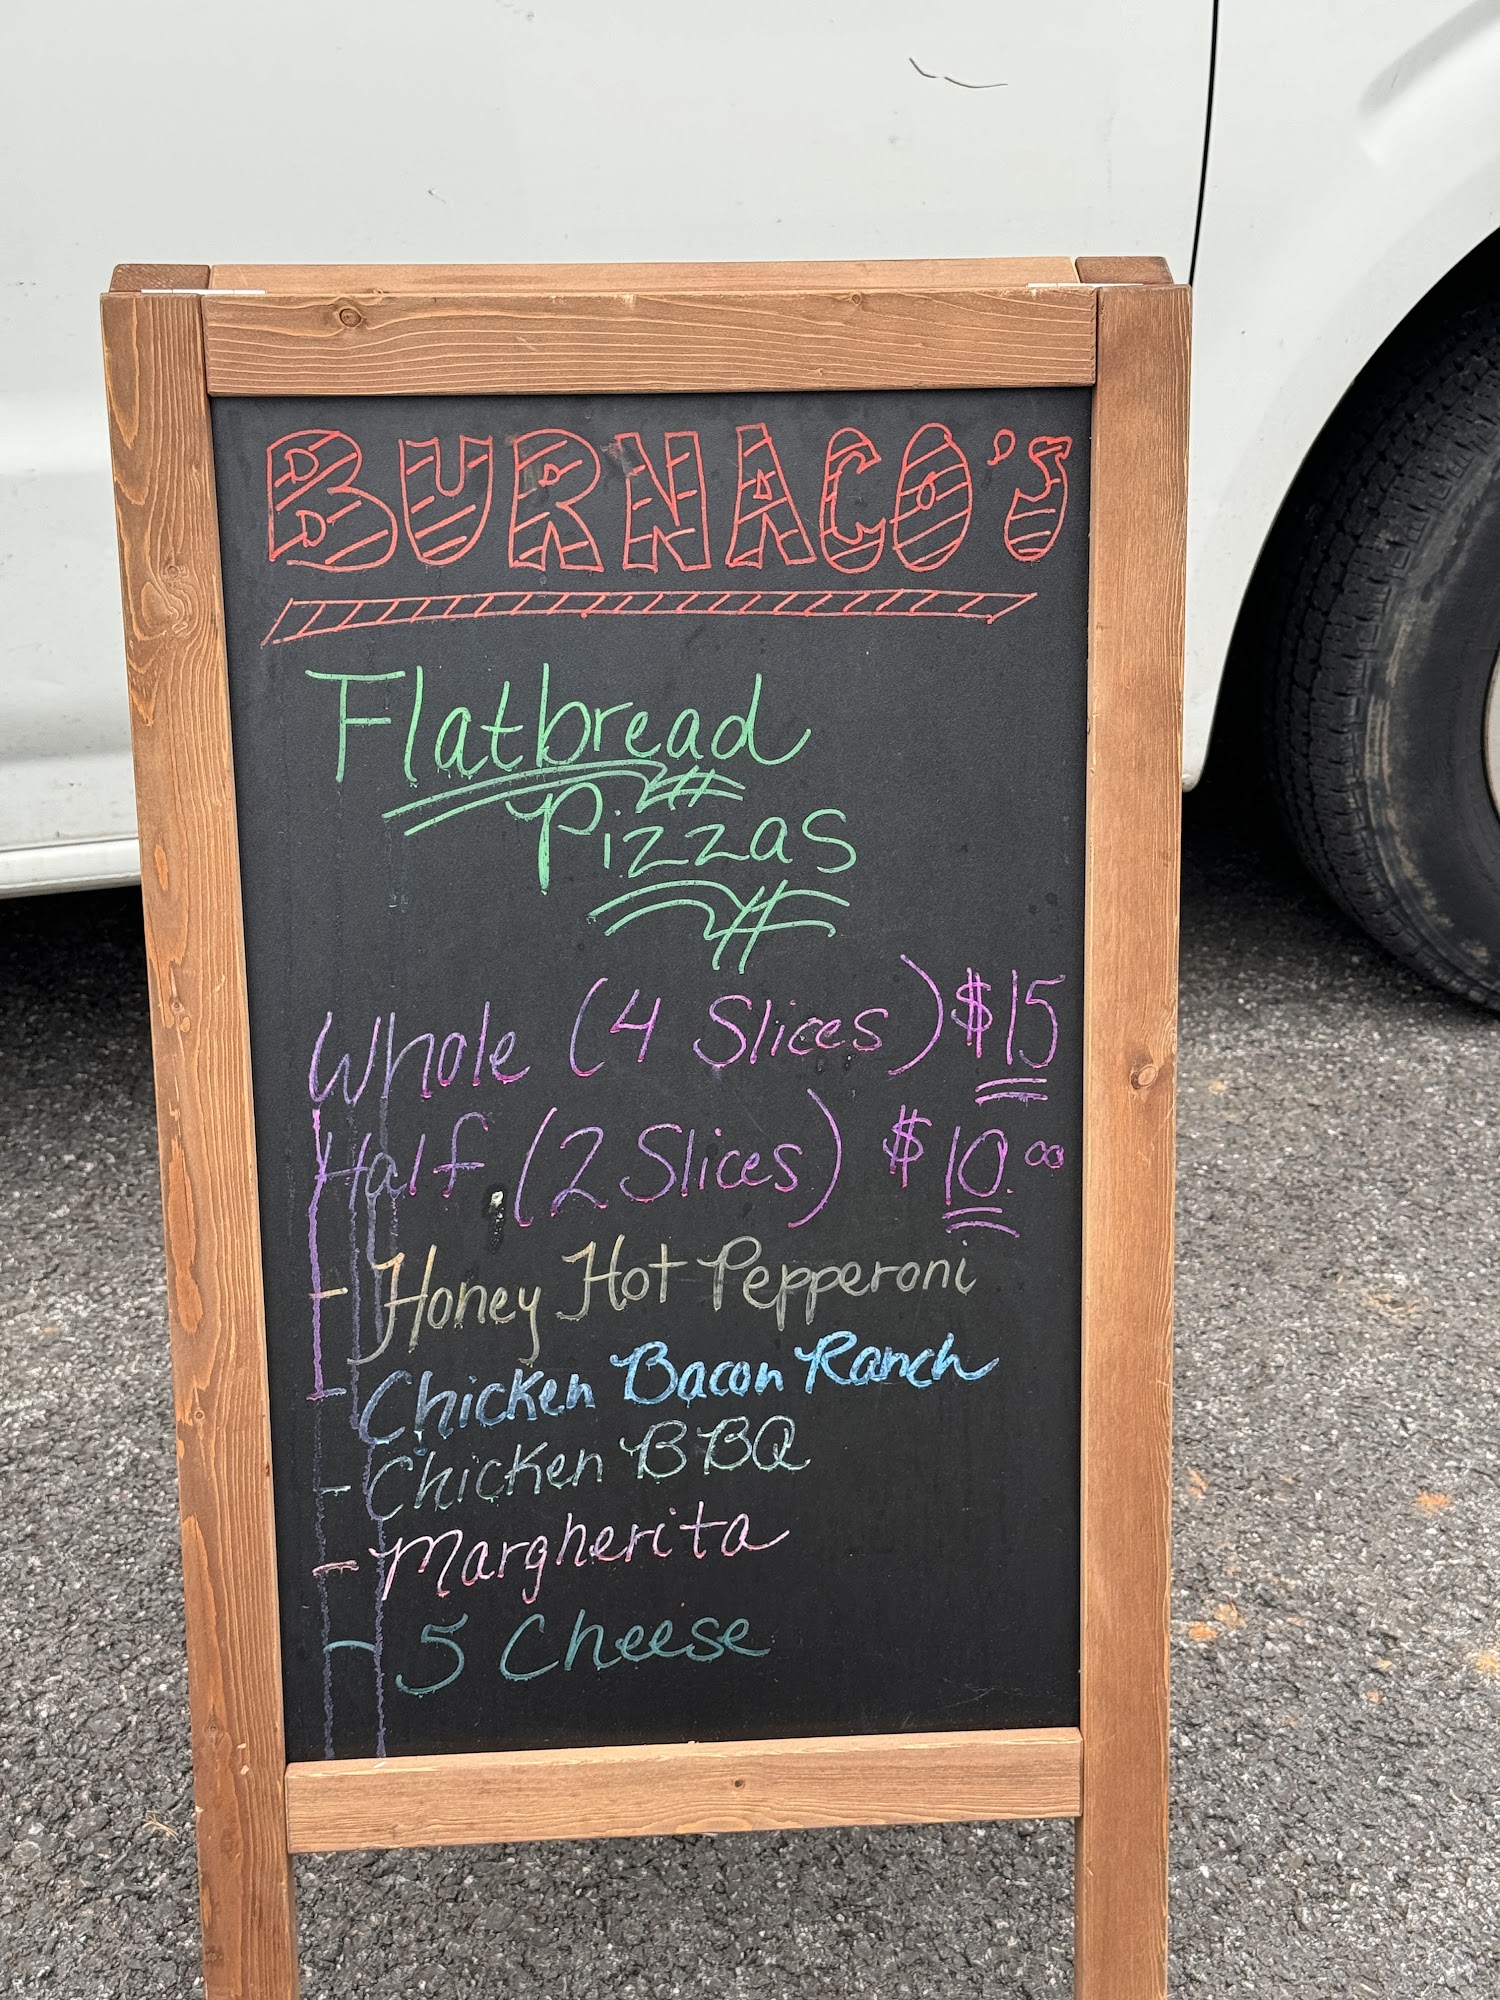 BURNACO'S
Flatbread
Pizzas
Whole (4 Slices) $15
Half (2 Slices) $10.00
- Honey Hot Pepperoni
- Chicken Bacon Ranch
- Chicken BBQ
- Margherita
- 5 Cheese